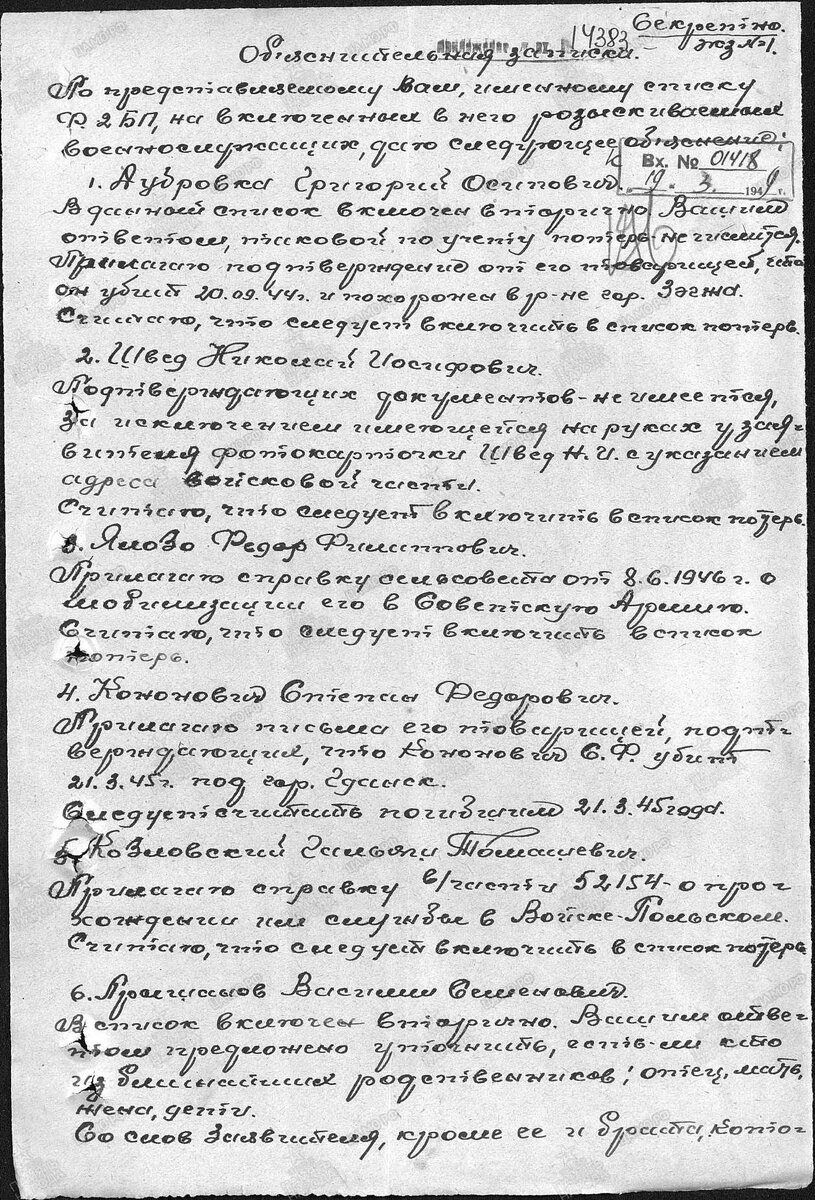 Секретно.
экз №1.
14383
Объяснительная записка.
По представляемому Вам, именному списку
Ф. 2 БП, на включенных в него розыскиваемых
военнослужащих, даю следующее объяснение:
Вх. № 01418
19. 3. 194 г.
1. Дубровка Григорий Осипович
В данный список включен вторично Вашим
ответом, таковой по учету потерь-не числится.
Прилагаю подтверждение от его товарищей, что
он убит 20.09.44г. и похоронен в р-не гор. Зегжа.
Считаю, что следует включить в список потерь.
2. Швед Николай Иосифович.
Подтверждающих документов-не имеется,
за исключением имеющейся на руках у зая-
вителя фотокарточки Швед Н.И. с указанием
адреса войсковой части.
Считаю, что следует включить в список потерь.
3. Ялозо Федор Филиппович.
Прилагаю справку сельсовета от 8.6.1946 г. о
мобилизации его в Советскую Армию.
Считаю, что следует включить в список
потерь.
4. Кононович Степан Федорович.
Прилагаю письма его товарищей, подт-
верждающих, что Кононович С.Ф. убит
21.3.45г. под гор. Гданск.
Следует считать погибшим 21.3.45 года.
5. Козловский Гальяш Томашевич.
Прилагаю справку в/части 52154-о прог-
хождении им службы в Войске-Польском.
Считаю, что следует включить в список потерь
6. Василий Семенович.
В список включен вторично. Вашим отве-
том предложено уточнить, есть-ли кто
из ближайших родственников; отец, мать,
жена, дети.
Со слов Заявителя, кроме ее и брата, котог-